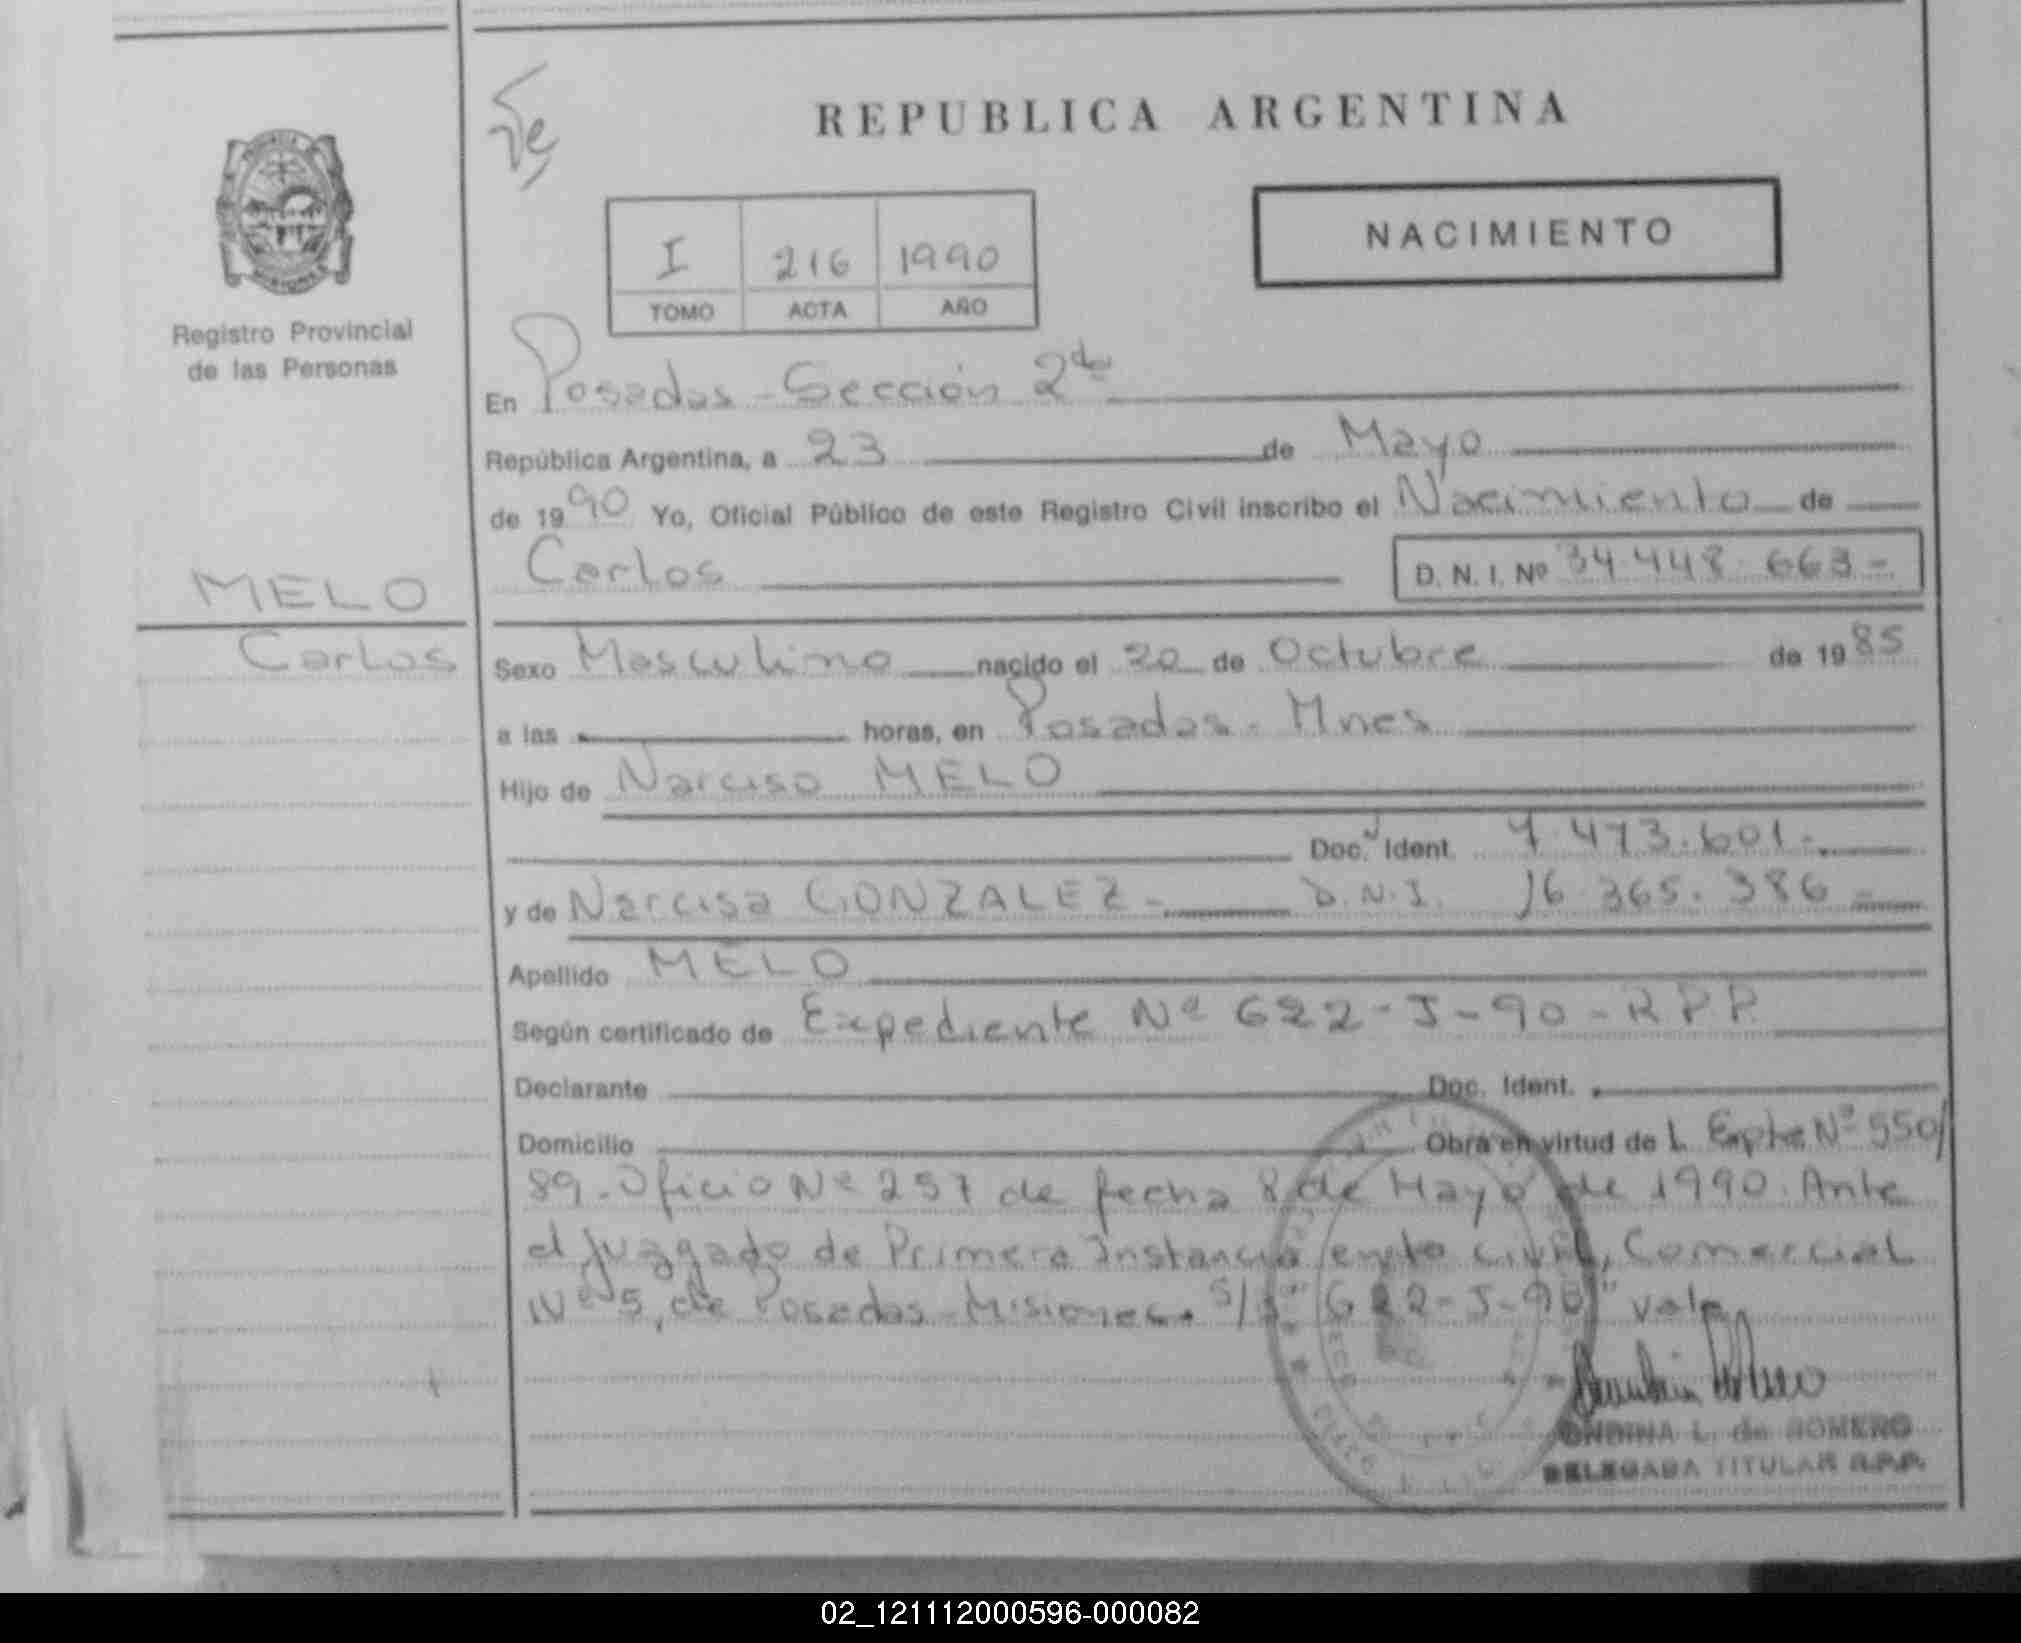 REPUBLICA ARGENTINA
NACIMIENTO
I 216 1990
TOMO ACTA AÑO
Registro Provincial
de las Personas
En Posadas - Sección 2da
República Argentina, a 23 de Mayo
de 1990 Yo, Oficial Público de este Registro Civil inscribo el Nacimiento de
Carlos D. N. I. Nº 34.448.663-
MELO
Carlos
Sexo Masculino nacido el 20 de Octubre de 1985
a las horas, en Posadas - Mnes
Hijo de Narciso MELO
Doc. Ident. 7.473.601.-
y de Narcisa GONZALEZ - D.N.I. 16.365.386 -
Apellido MELO
Según certificado de Expediente Nº 622-J-90-R.P.P.
Declarante Doc. Ident.
Domicilio Obra en virtud de Expte Nº 550/
89. Oficio Nº 257 de fecha 8 de Mayo de 1990. Ante
el Juzgado de Primera Instancia en lo Civil, Comercial
Nº 5, de Posadas - Misiones. "622-J-90" vale
ONDINA L. de ROMERO
DELEGADA TITULAR R.P.P.
02_121112000596-000082